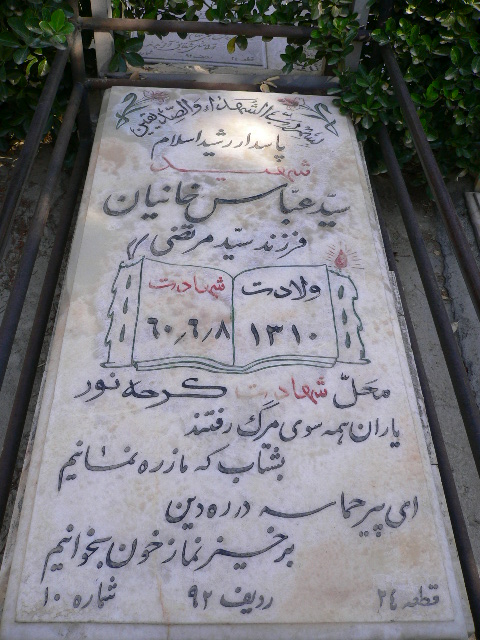 بسم رب الشهداء والصدیقین
پاسدار رشید اسلام
شهید
سیّد عبّاس خانیان
فرزند سیّد مرتضی
ولادت شهادت
۱۳۱۰ ۶۰٫۶٫۸
محلّ شهادت کرخه نور
یاران همه سوی مرگ رفتند
بشتاب که ما ز ره نمانیم
ای پیر حماسه در ره دین
برخیز نماز خون بخوانیم
قطعه ۲۴ ردیف ۹۲ شماره ۱۰